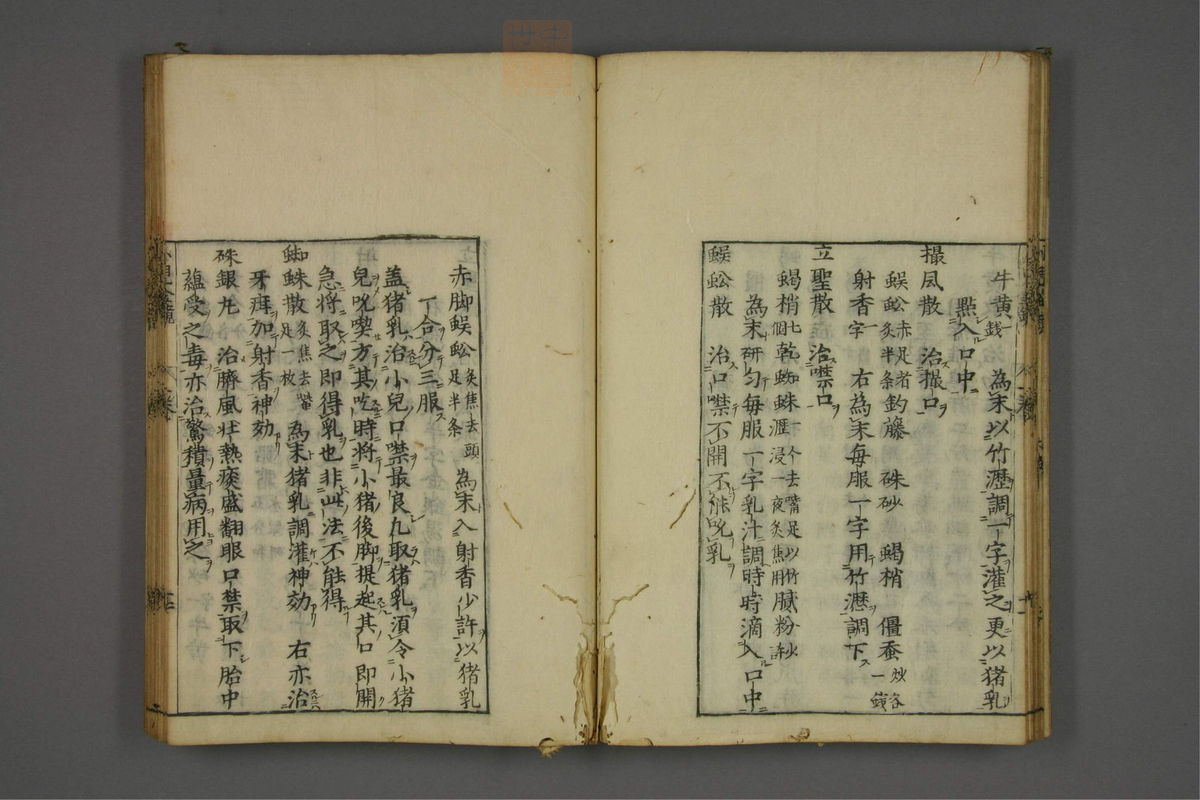 牛黄錢 為末以竹瀝調一字灌之更以猪乳
㸃入口中
撮風散 治撮口
蜈蚣赤足者炙半条 釣藤 硃砂 蝎梢 僵蚕炒各一錢
射香一字 右為末每服一字用竹瀝調下
立聖散 治噤口
蝎梢七個 乾蜘蛛一个去嘴足以竹瀝浸一夜炙焦用 膩粉抄許
為末研匀每服一字乳汁調時時滴入口中
蜈蚣散 治口噤不開不能吮乳
赤脚蜈蚣炙焦去頭足半条 為末入射香少許以猪乳
一合分三服
盖猪乳治小兒口噤最良凡取猪乳須令小猪
兒吮喫方其吃時将小猪後脚提起其口即開
急将取之即得乳也非此法不能得
蜘蛛散炙焦去嘴足一枚 為末猪乳調灌神効 右亦治
牙疳加射香神効
硃銀丸 治臍風壮熱痰盛翻眼口禁取下胎中
蘊受之毒亦治驚積量病用之